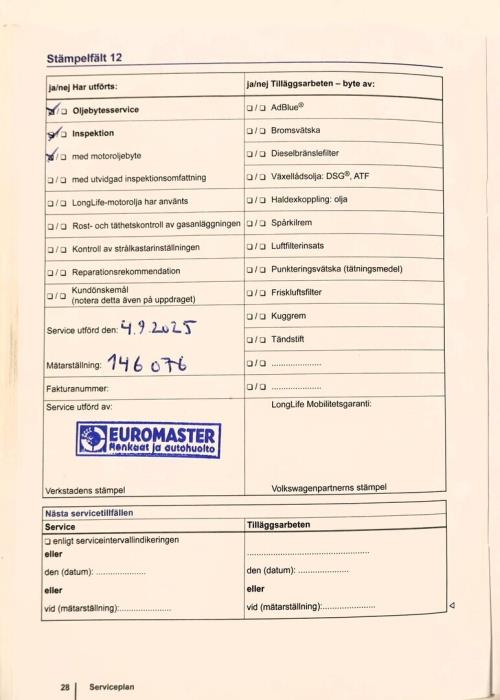 Stämpelfält 12
ja/nej Har utförts:
ja/nej Tilläggsarbeten – byte av:
☑/☐ Oljebytesservice
☐/☐ AdBlue®
☑/☐ Inspektion
☐/☐ Bromsvätska
☑/☐ med motoroljebyte
☐/☐ Dieselbränslefilter
☐/☐ med utvidgad inspektionsomfattning
☐/☐ Växellådsolja: DSG®, ATF
☐/☐ LongLife-motorolja har använts
☐/☐ Haldexkoppling: olja
☐/☐ Rost- och täthetskontroll av gasanläggningen
☐/☐ Spårkilrem
☐/☐ Kontroll av strålkastarinställningen
☐/☐ Luftfilterinsats
☐/☐ Reparationsrekommendation
☐/☐ Punkteringsvätska (tätningsmedel)
☐/☐ Kundönskemål
(notera detta även på uppdraget)
☐/☐ Friskluftsfilter
☐/☐ Kuggrem
Service utförd den: 4.9.2025
☐/☐ Tändstift
Mätarställning: 146 076
☐/☐ ....................
Fakturanummer:
☐/☐ ....................
Service utförd av:
LongLife Mobilitetsgaranti:
EUROMASTER
Renkaat ja autohuolto
Verkstadens stämpel
Volkswagenpartnerns stämpel
Nästa servicetillfällen
Service
Tilläggsarbeten
☐ enligt serviceintervallindikeringen
eller
..................................................
den (datum): ....................
den (datum): ....................
eller
eller
vid (mätarställning):....................
vid (mätarställning):....................
28 | Serviceplan